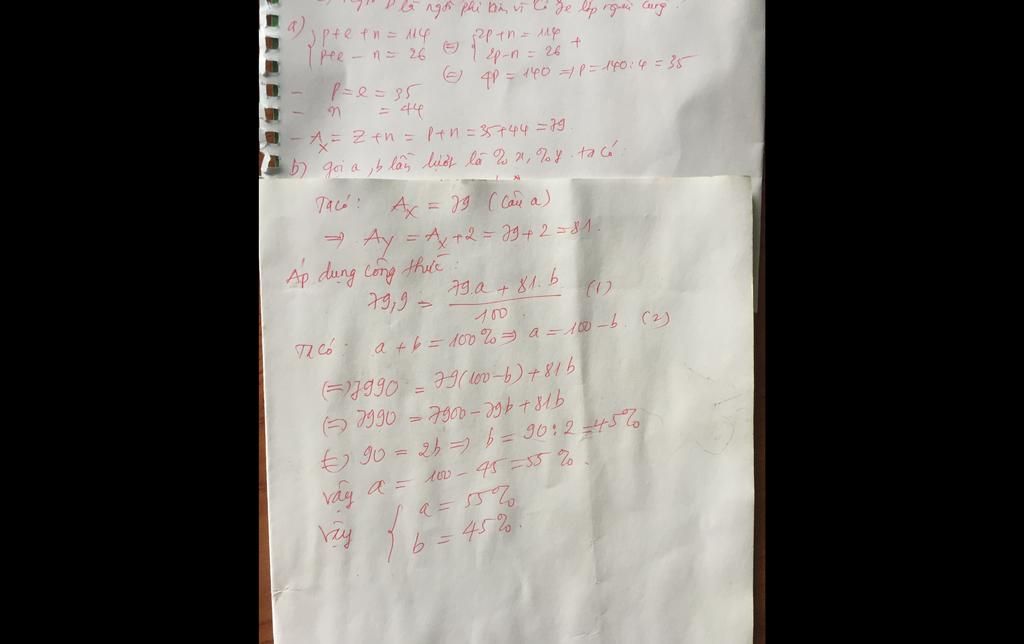 là ngtố phi kim vì có 7e lớp ngoài cùng.
a) { p+e+n = 114 (=) { 2p+n = 114
{ p+e-n = 26 { 2p-n = 26 +
(=) 4p = 140 => p = 140:4 = 35
- p=e = 35
- n = 44
- Ax = Z+n = p+n = 35+44 = 79
b) gọi a, b lần lượt là % x, % y. ta có:
Ta có: Ax = 79 (câu a)
=> Ay = Ax+2 = 79+2 = 81.
Áp dụng công thức:
79,9 = 79.a + 81.b / 100 (1)
Ta có: a + b = 100% => a = 100-b. (2)
(=) 7990 = 79(100-b) + 81b
(=) 7990 = 7900-79b+81b
(=) 90 = 2b => b = 90:2 = 45%
vậy a = 100 - 45 = 55%.
vậy { a = 55%
{ b = 45%.